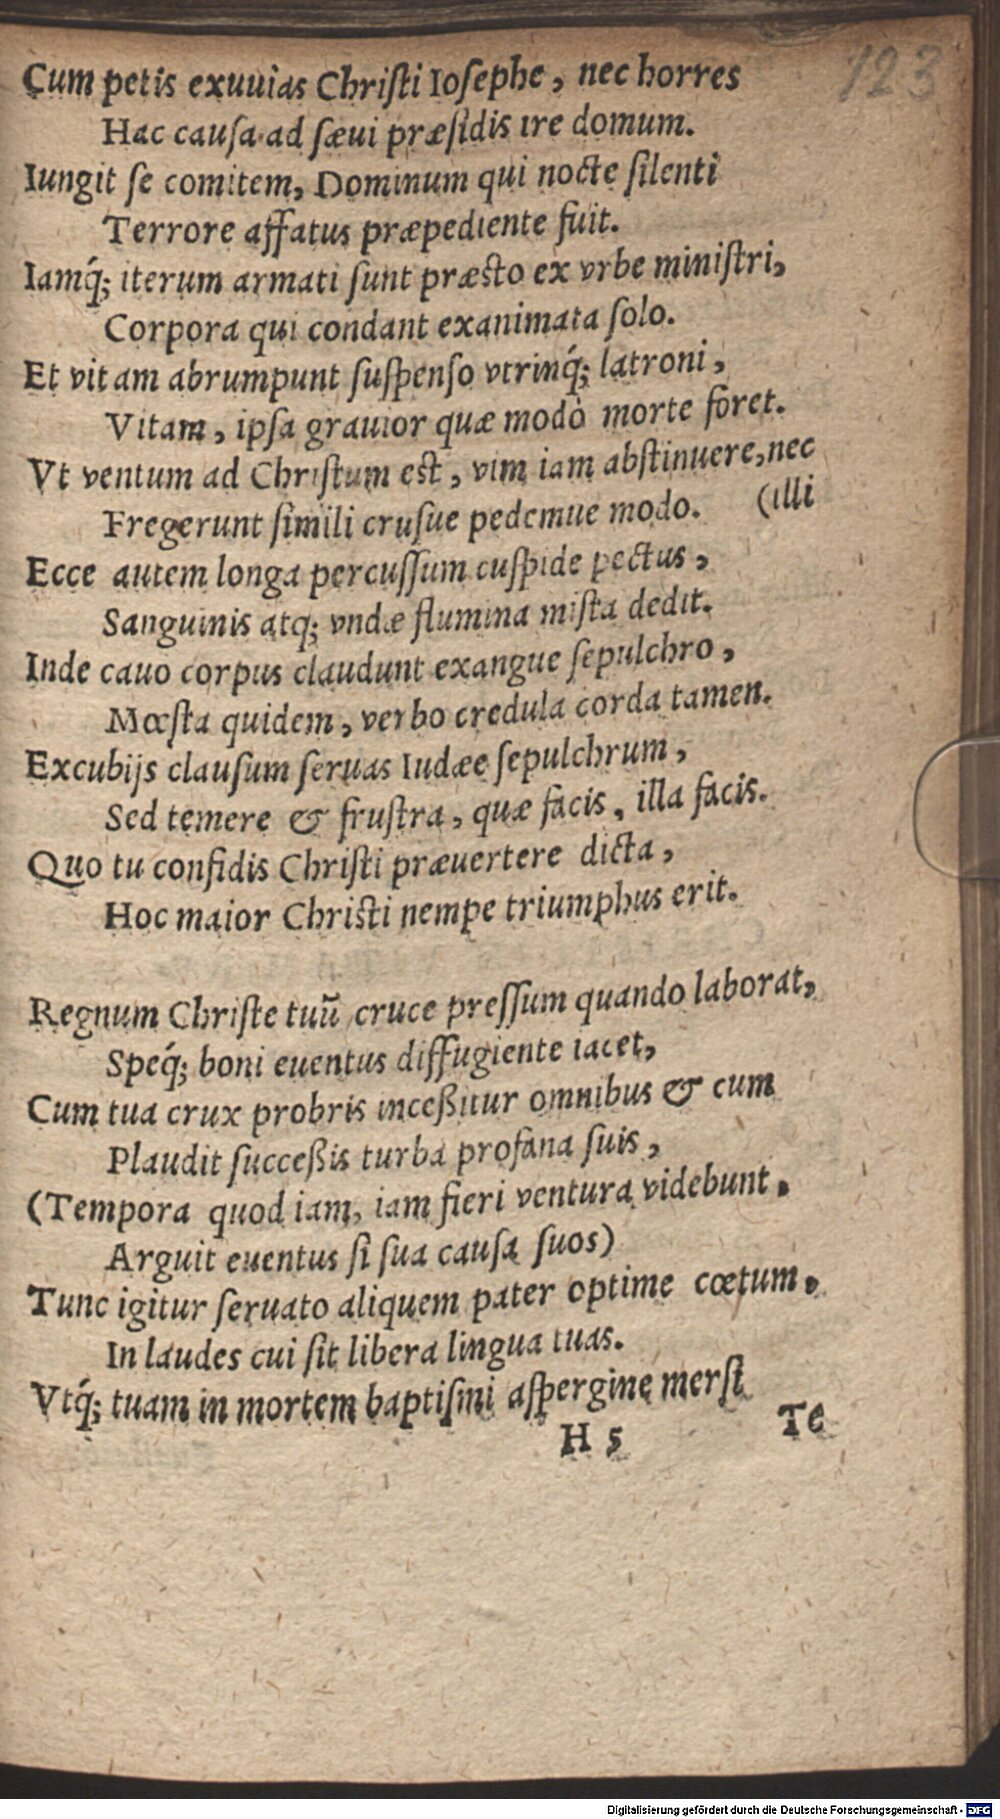 123
Cum petis exuuias Chriſti Ioſephe, nec horres
Hac cauſa ad ſæui præſidis ire domum.
Iungit ſe comitem, Dominum qui nocte ſilenti
Terrore affatus præpediente fuit.
Iamq́; iterum armati ſunt præſto ex vrbe miniſtri,
Corpora qui condant exanimata ſolo.
Et vitam abrumpunt ſuſpenſo vtrinq́; latroni,
Vitam, ipſa grauior quæ modò morte foret.
Vt ventum ad Chriſtum eſt, vim iam abſtinuere, nec
(illi
Fregerunt ſimili cruſue pedemue modo.
Ecce autem longa percuſſum cuſpide pectus,
Sanguinis atq; vndæ flumina miſta dedit.
Inde cauo corpus claudunt exangue ſepulchro,
Mœſta quidem, verbo credula corda tamen.
Excubijs clauſum ſeruas Iudæe ſepulchrum,
Sed temere & fruſtra, quæ facis, illa facis.
Quo tu confidis Chriſti præuertere dicta,
Hoc maior Chriſti nempe triumphus erit.
Regnum Chriſte tuũ cruce preſſum quando laborat,
Speq́; boni euentus diffugiente iacet,
Cum tua crux probris inceßitur omnibus & cum
Plaudit ſucceßis turba profana ſuis,
(Tempora quod iam, iam fieri ventura videbunt,
Arguit euentus ſi ſua cauſa ſuos)
Tunc igitur ſeruato aliquem pater optime cœtum,
In laudes cui ſit libera lingua tuas.
Vtq́; tuam in mortem baptiſmi aſpergine merſt
H 5
Te
Digitalisierung gefördert durch die Deutsche Forschungsgemeinschaft - DFG